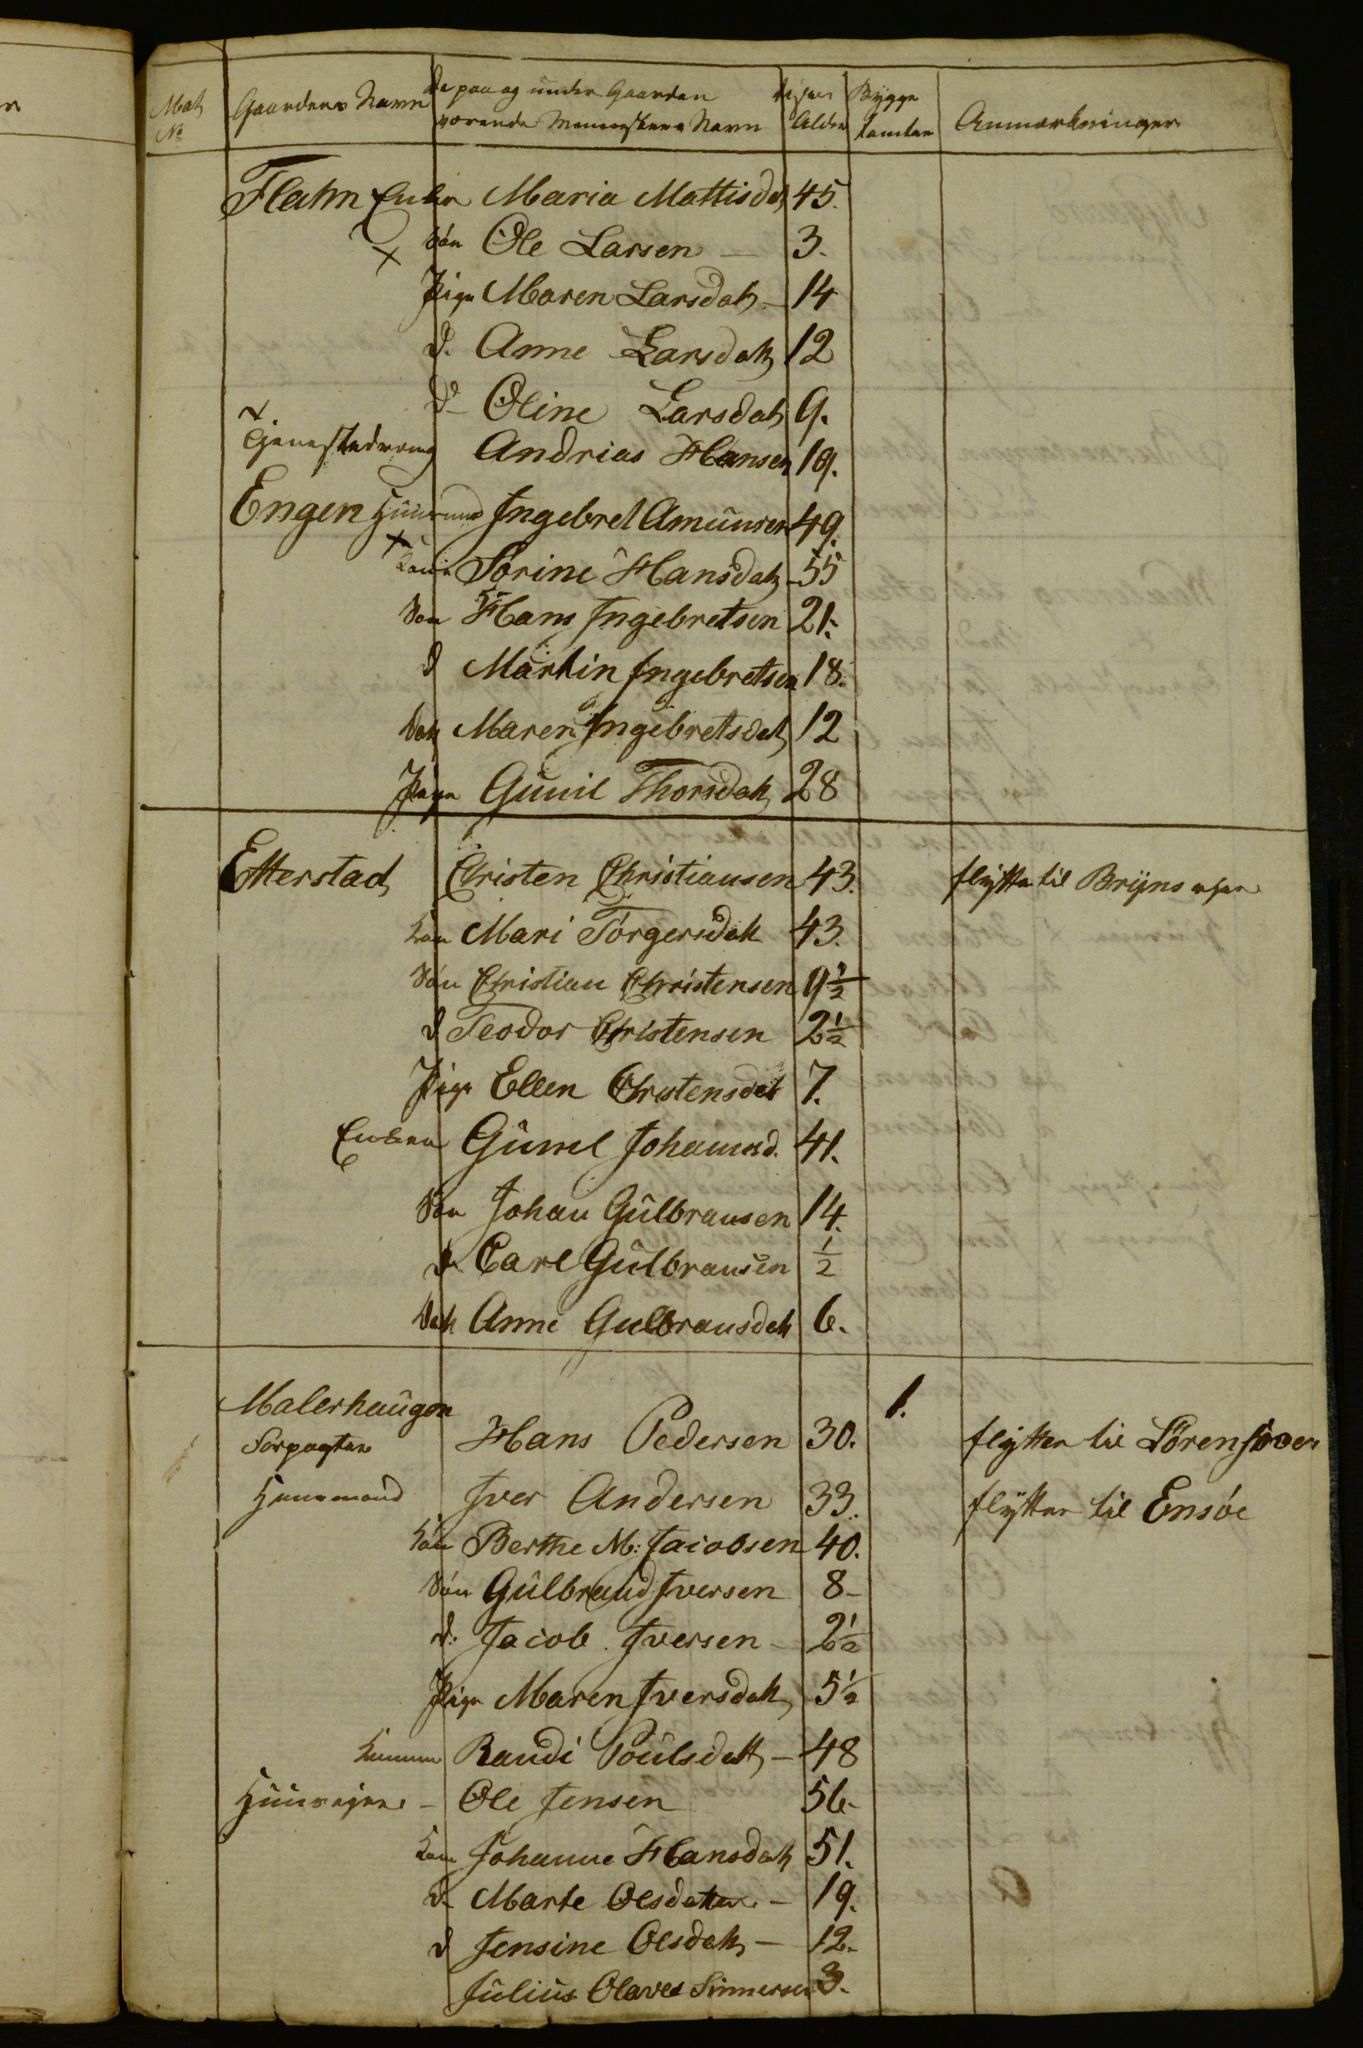 Mat No Gaardens Navn De paa og under Gaarden værende Menneskers Navn Alder Bygge Anmærkninger
Flatin Enken Maria Mattisdat 45.
Sön Ole Larsen — 3.
Pige Maren Larsdat — 14
D. Anne Larsdatt 12
D — Oline Larsdat 9.
Tjenestedreng Andrias Hansen 19.
Engen Huusmand Ingebret Amunsen 49.
Kone Sörine Hansdatt — 55
Sön Hans Ingebretsen 21.
D Martin Ingebretsen 18.
Datt Maren Ingebretsdat 12
Pige Gunil Thorsdatt 28
Etterstad Christen Christiansen 43. flytte til Bryns
Kone Mari Torgersdatt 43.
Sön Christian Christensen 9½
D Teodor Christensen 2½
Pige Ellen Christensdat 7.
Enken Gunnel Johannsd. 41.
Sön Johan Gulbransen 14.
D. Carl Gulbransen ½
Datt Anne Gulbransdatt 6.
Malerhaugen 1.
Forpagter Hans Pedersen 30. flytter til
Huusmand Iver Andersen 33. flytter til Ensöe
Kone Berthe M: Jacobsen 40.
Sön Gulbrand Iversen 8 —
D: Jacob Iversen — 2½
Pige Maren Iversdatt 5½
Randi Poulsdatt — 48
Huusejer — Ole Jensen 56.
Kone Johanne Hansdatt 51.
D. Marte Olsdatter — 19.
D Jensine Olsdatt — 12.
Julius Olaves 3.